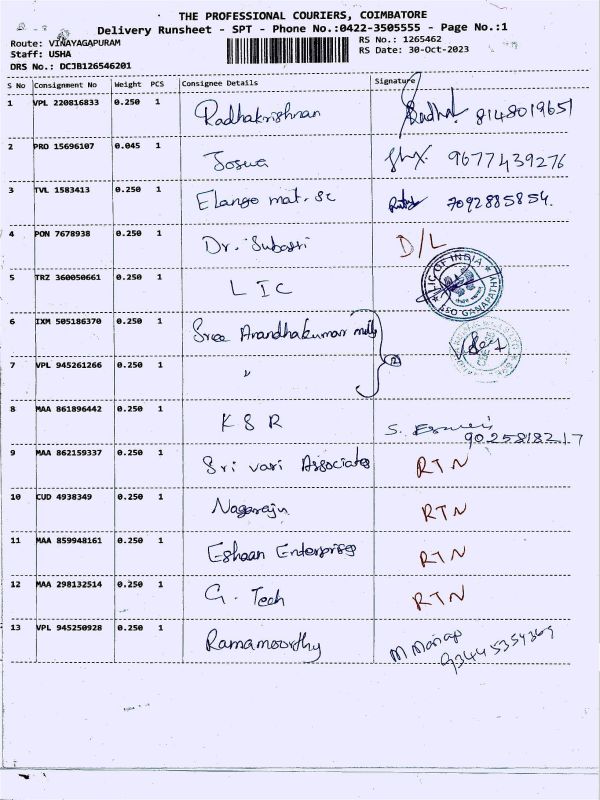 THE PROFESSIONAL COURIERS, COIMBATORE
Delivery Runsheet - SPT - Phone No.:0422-3505555 - Page No.:1
Route: VINAYAGAPURAM RS No.: 1265462
Staff: USHA RS Date: 30-Oct-2023
DRS No.: DCJB126546201
S No Consignment No Weight PCS Consignee Details Signature
1 VPL 220816833 0.250 1 Radhakrishnan 8148019651
2 PRO 15696107 0.045 1 Joswa 9677439276
3 TVL 1583413 0.250 1 Elango mat. sc 7092885854.
4 PON 7678938 0.250 1 Dr. Subasri D/L
5 TRZ 360050661 0.250 1 LIC LIC OF INDIA
6 IXM 505186370 0.250 1 Sree Anandhakumar mills
7 VPL 945261266 0.250 1 " 2
8 MAA 861896442 0.250 1 KSR S.
9025818217
9 MAA 862159337 0.250 1 Sri vari Associates RTN
10 CUD 4938349 0.250 1 Nagaraju RTN
11 MAA 859948161 0.250 1 Eshaan Enterprises RTN
12 MAA 298132514 0.250 1 G. Tech RTN
13 VPL 945250928 0.250 1 Ramamoorthy M